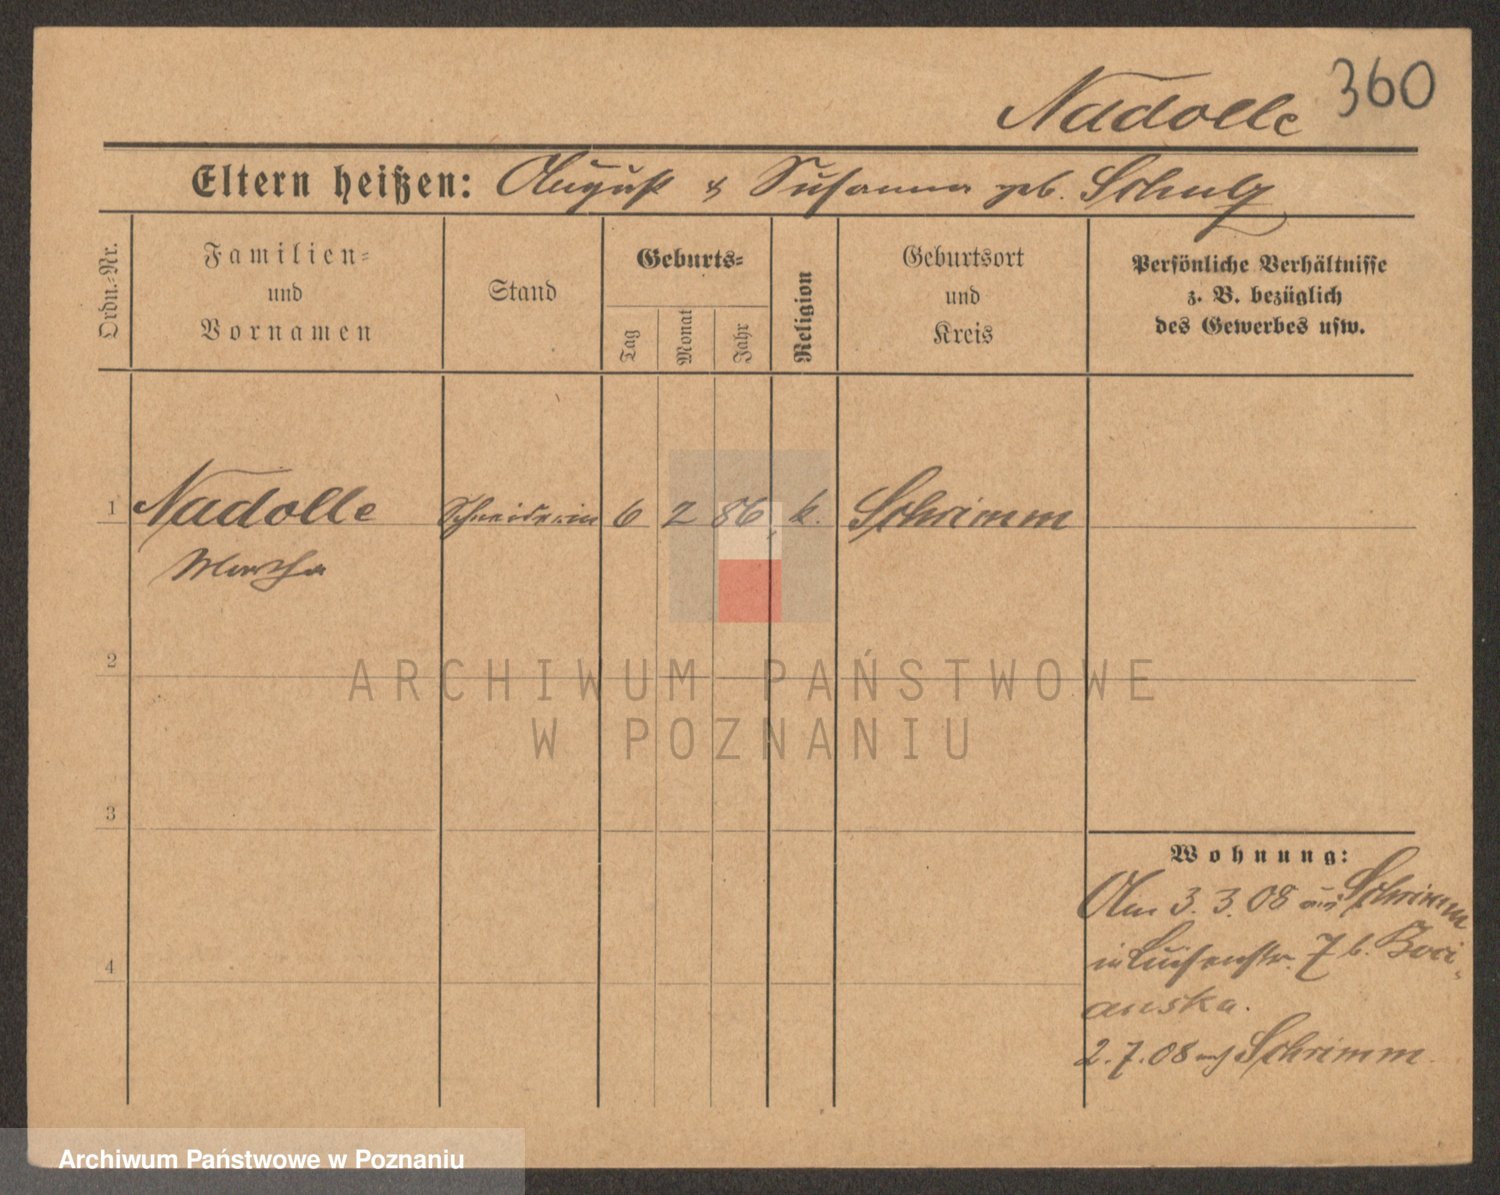 Nadolle 360
Eltern heißen: August & Susanna geb. Schulz
Ordn.-Nr.
Familien-
und
Vornamen
Stand
Geburts-
Tag
Monat
Jahr
Religion
Geburtsort
und
Kreis
Persönliche Verhältnisse
z. B. bezüglich
des Gewerbes usw.
1 Nadolle Schneiderin 6 2 86, k. Schrimm
Martha
2
ARCHIWUM PAŃSTWOWE
W POZNANIU
3
Wohnung:
Am 3. 3. 08 aus Schrimm
in Luisenstr. 7 b.
4
anska.
2. 7. 08 nach Schrimm.
Archiwum Państwowe w Poznaniu